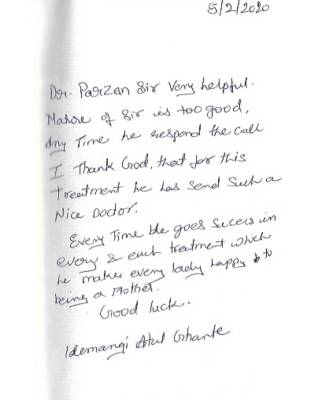 5/2/2020
Dr. Parzan Sir Very helpful.
Nature of Sir is too good,
Any Time he respond the call
I Thank God, that for this
treatment he has send such a
Nice Doctor.
Every Time he goes succers in
every & each treatment which
he makes every lady happy to
being a Mother.
Good luck.
Atul